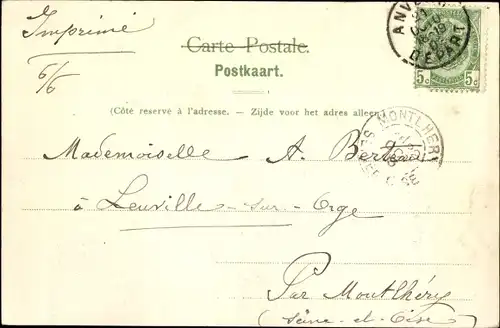 Imprimé
6/6
Carte Postale.
Postkaart.
(Côté reservé à l'adresse. – Zijde voor het adres alleen.)
ANV
DEPART
5c 5c
MONTLHERY
Mademoiselle A.
à Leuville-sur-Orge
Par Montlhéry
(Seine-et-Oise)